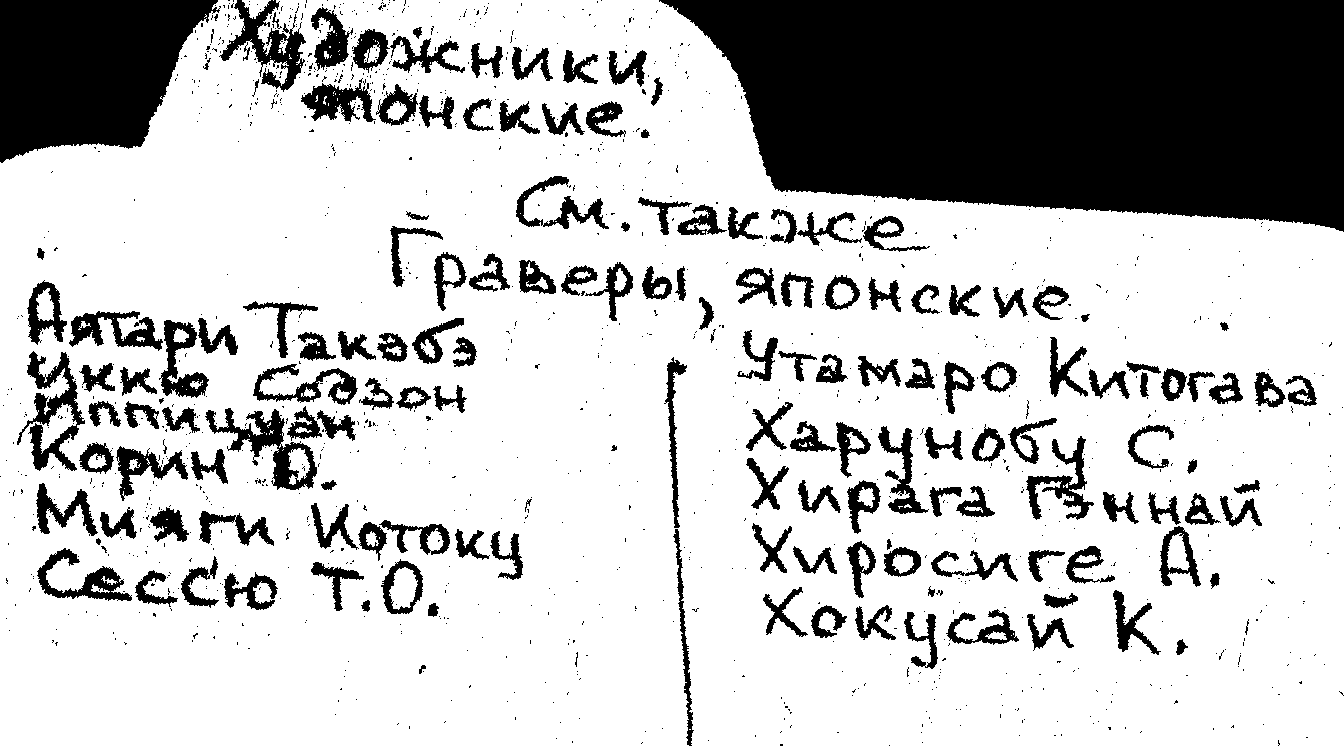 Художники,
японские.
См. также
Граверы, японские.
Аятари Такэбэ
Иккю Содзон
Иппицуан
Корин О.
Мияги Котоку
Сессю Т.О.
Утамаро Китогава
Харунобу С.
Хирага Гэннай
Хиросиге А.
Хокусай К.